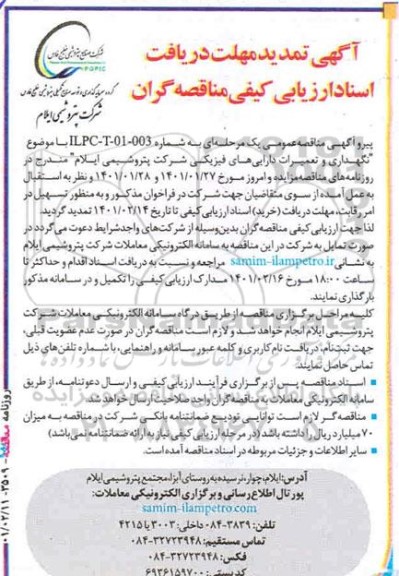 شرکت صنایع پتروشیمی خلیج فارس
PGPIC
گروه سرمایه‌گذاری و توسعه صنایع تکمیلی پتروشیمی خلیج فارس
شرکت پتروشیمی ایلام
آگهی تمدید مهلت دریافت
اسناد ارزیابی کیفی مناقصه گران
پیرو آگهی مناقصه عمومی یک مرحله‌ای به شماره ILPC-T-01-003 با موضوع
"نگهداری و تعمیرات دارایی‌های فیزیکی شرکت پتروشیمی ایلام" مندرج در
روزنامه های مناقصه مزایده و امروز مورخ ۱۴۰۱/۰۱/۲۷ و ۱۴۰۱/۰۱/۲۸ و نظر به استقبال
به عمل آمده از سوی متقاضیان جهت شرکت در فراخوان مذکور و به منظور تسهیل در
امر رقابت، مهلت دریافت (خرید) اسناد ارزیابی کیفی تا تاریخ ۱۴۰۱/۰۲/۱۴ تمدید گردید.
لذا جهت ارزیابی کیفی مناقصه گران بدین‌وسیله از شرکت‌های واجد شرایط دعوت می‌گردد در
صورت تمایل به شرکت در این مناقصه به سامانه الکترونیکی معاملات شرکت پتروشیمی ایلام
به نشانی samim-ilampetro.ir مراجعه و نسبت به دریافت اسناد اقدام و حداکثر تا
ساعت ۱۸:۰۰ مورخ ۱۴۰۱/۰۲/۱۶ مدارک ارزیابی کیفی را تکمیل و در سامانه مذکور
بارگذاری نمایند.
کلیه مراحل برگزاری مناقصه از طریق درگاه سامانه الکترونیکی معاملات شرکت
پتروشیمی ایلام انجام خواهد شد و لازم است مناقصه گران در صورت عدم عضویت قبلی،
جهت ثبت‌نام، دریافت نام کاربری و کلمه عبور سامانه و راهنمایی، با شماره تلفن‌های ذیل
تماس حاصل نمایند:
اسناد مناقصه پس از برگزاری فرآیند ارزیابی کیفی و ارسال دعوتنامه، از طریق
سامانه الکترونیکی معاملات به مناقصه گران واجد صلاحیت ارسال خواهد شد.
مناقصه گر لازم است توانایی تودیع ضمانتنامه بانکی شرکت در مناقصه به میزان
۷۰ میلیارد ریال را داشته باشد (در مرحله ارزیابی کیفی نیاز به ارائه ضمانتنامه نمی‌باشد)
سایر اطلاعات و جزئیات مربوطه در اسناد مناقصه آمده است.
آدرس: ایلام، چوار، نرسیده به روستای آبزا، مجتمع پتروشیمی ایلام
پورتال اطلاع رسانی و برگزاری الکترونیکی معاملات:
samim-ilampetro.com
تلفن: ۳۸۳۹-۰۸۴ داخلی: ۳۰۰۳ یا ۴۲۱۵
تماس مستقیم: ۳۲۷۲۳۹۴۸-۰۸۴
فکس: ۳۲۷۲۳۹۴۸-۰۸۴
کدپستی: ۶۹۳۶۱۵۹۷۰۰
روزنامه مناقصه ۳۵۰۹ - ۰۱/۰۲/۱۱